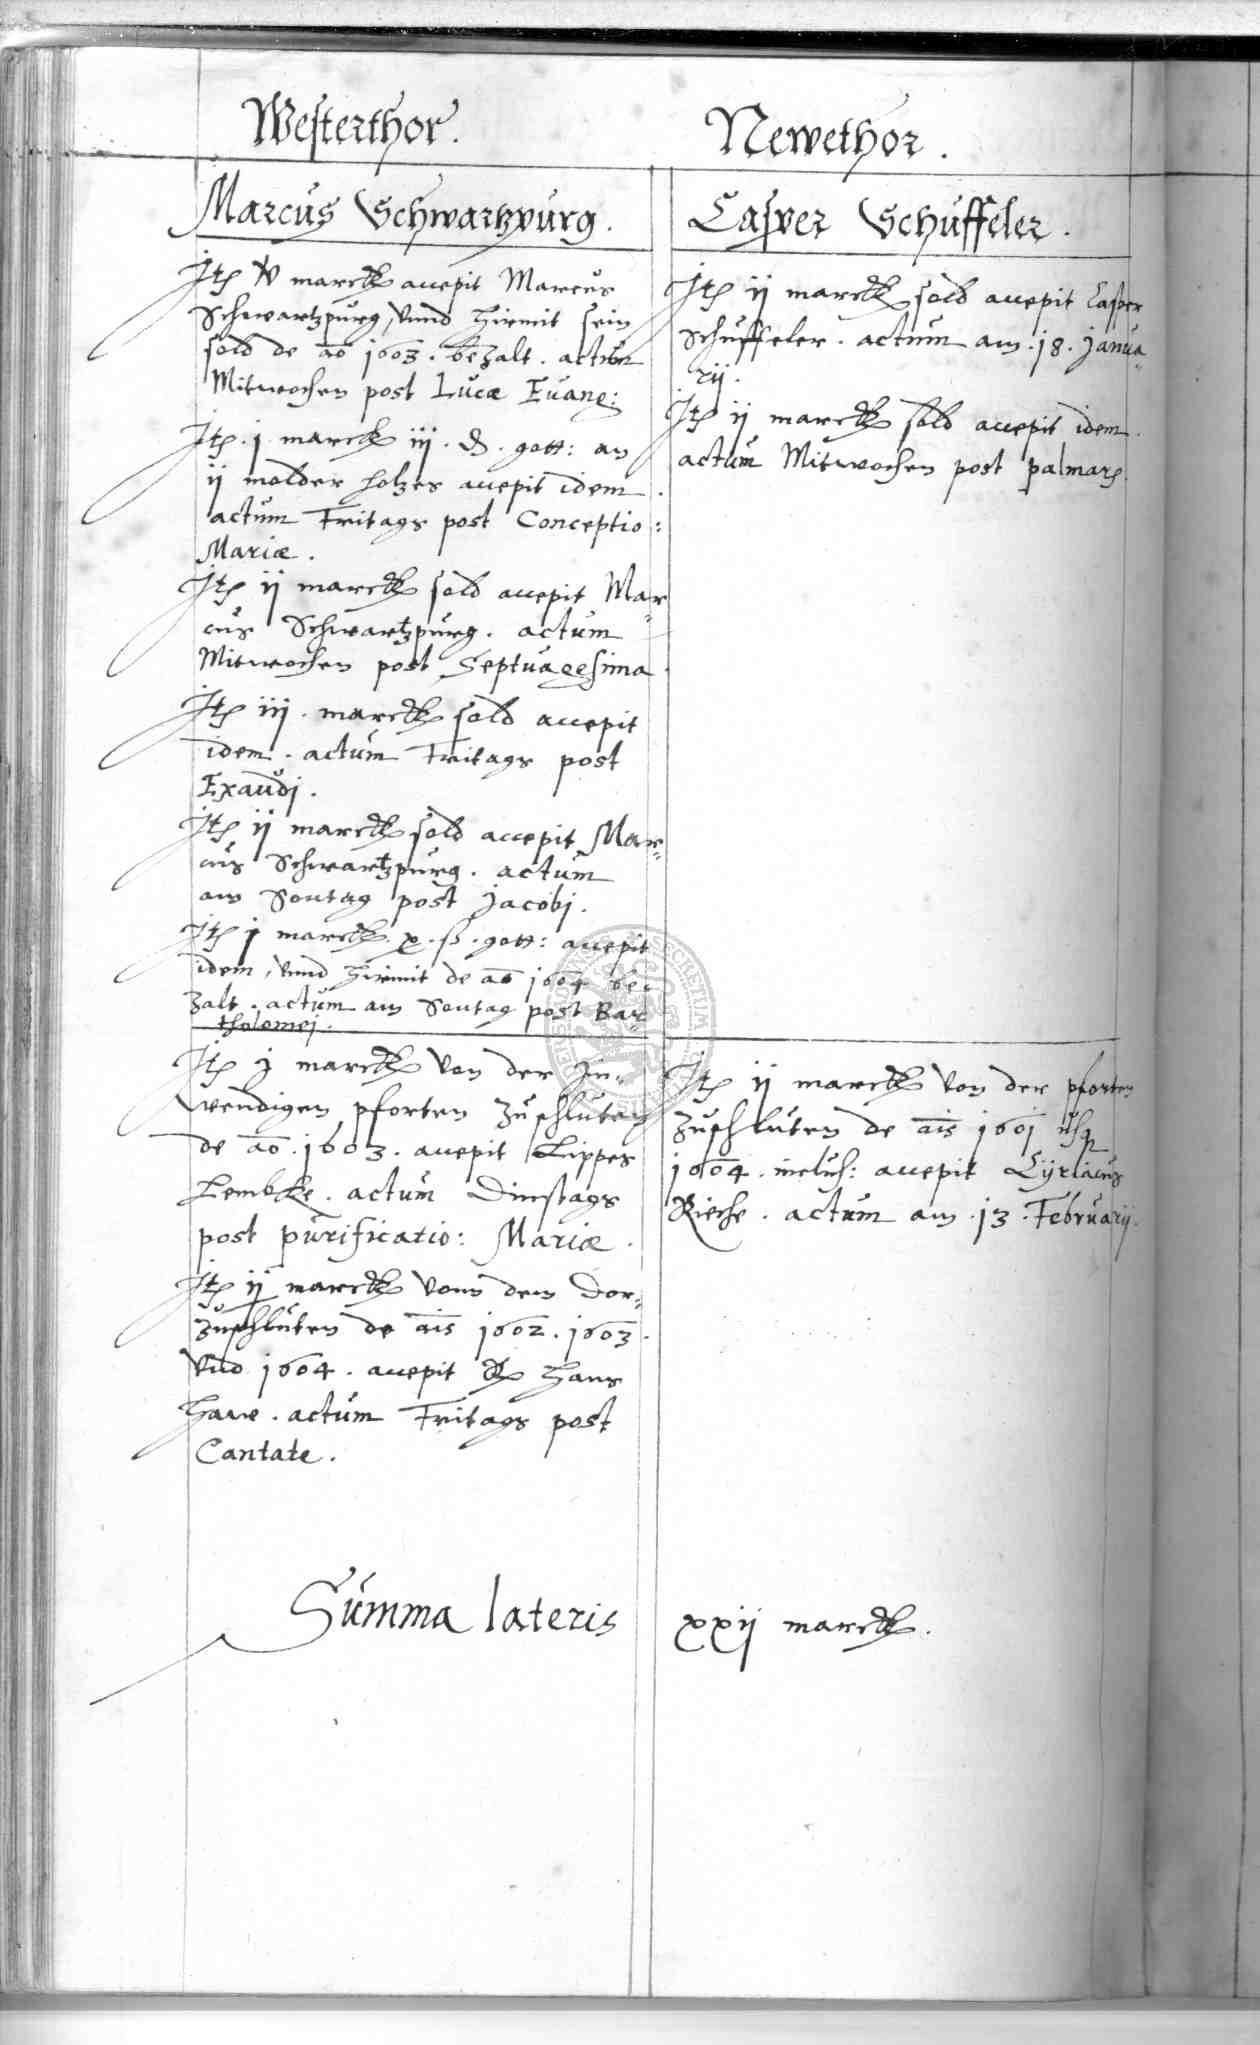 Westerthor.
Marcus Schwartzpurg.
Jtem v marck accepit Marcus
Schwartzpurg, vnnd hirmit sein
sold de ao 1603. bezalt. actum
Mitwochen post Lucæ Euang:
Jtem. j marck iij. ₰. gott: an
ij molder holzes accepit idem.
actum Fritags post Conceptio:
Mariæ.
Jtem ij marck sold accepit Mar=
cus Schwartzpurg. actum
Mitwochen post Septuagesima.
Jtem iij. marck sold accepit
idem. actum Fritags post
Exaudj.
Jtem ij marck sold accepit Mar=
cus Schwartzpurg. actum
am Sontag post Jacobj.
Jtem j marck. x. ß. gott: accepit
idem, vnnd hirmit de ao 1604 be=
zalt. actum am Sontag post Bar=
tholomej.
Jtem j marck von der In=
wendigen pforten zuschluten
de ao. 1603. accepit Lippes
Lembke. actum Dinstags
post purificatio: Mariæ.
Jtem ij marck vonn dem Dor=
zuschluten de ais 1602. 1603.
vnd 1604. accepit Hans
Have. actum Fritags post
Cantate.
Newethor.
Casper Schuffeler.
Jtem ij marck sold accepit Casper
Schuffeler. actum am. 18. Janua=
rij.
Jtem ij marck sold accepit idem.
actum Mitwochen post palmar.
Jtem ij marck von der pforten
zuschluten de ais 1601 usq
1604. inclus: accepit Cyriacus
Rieche. actum am. 13. Februarij.
Summa lateris xxij marck.
SECRETUM